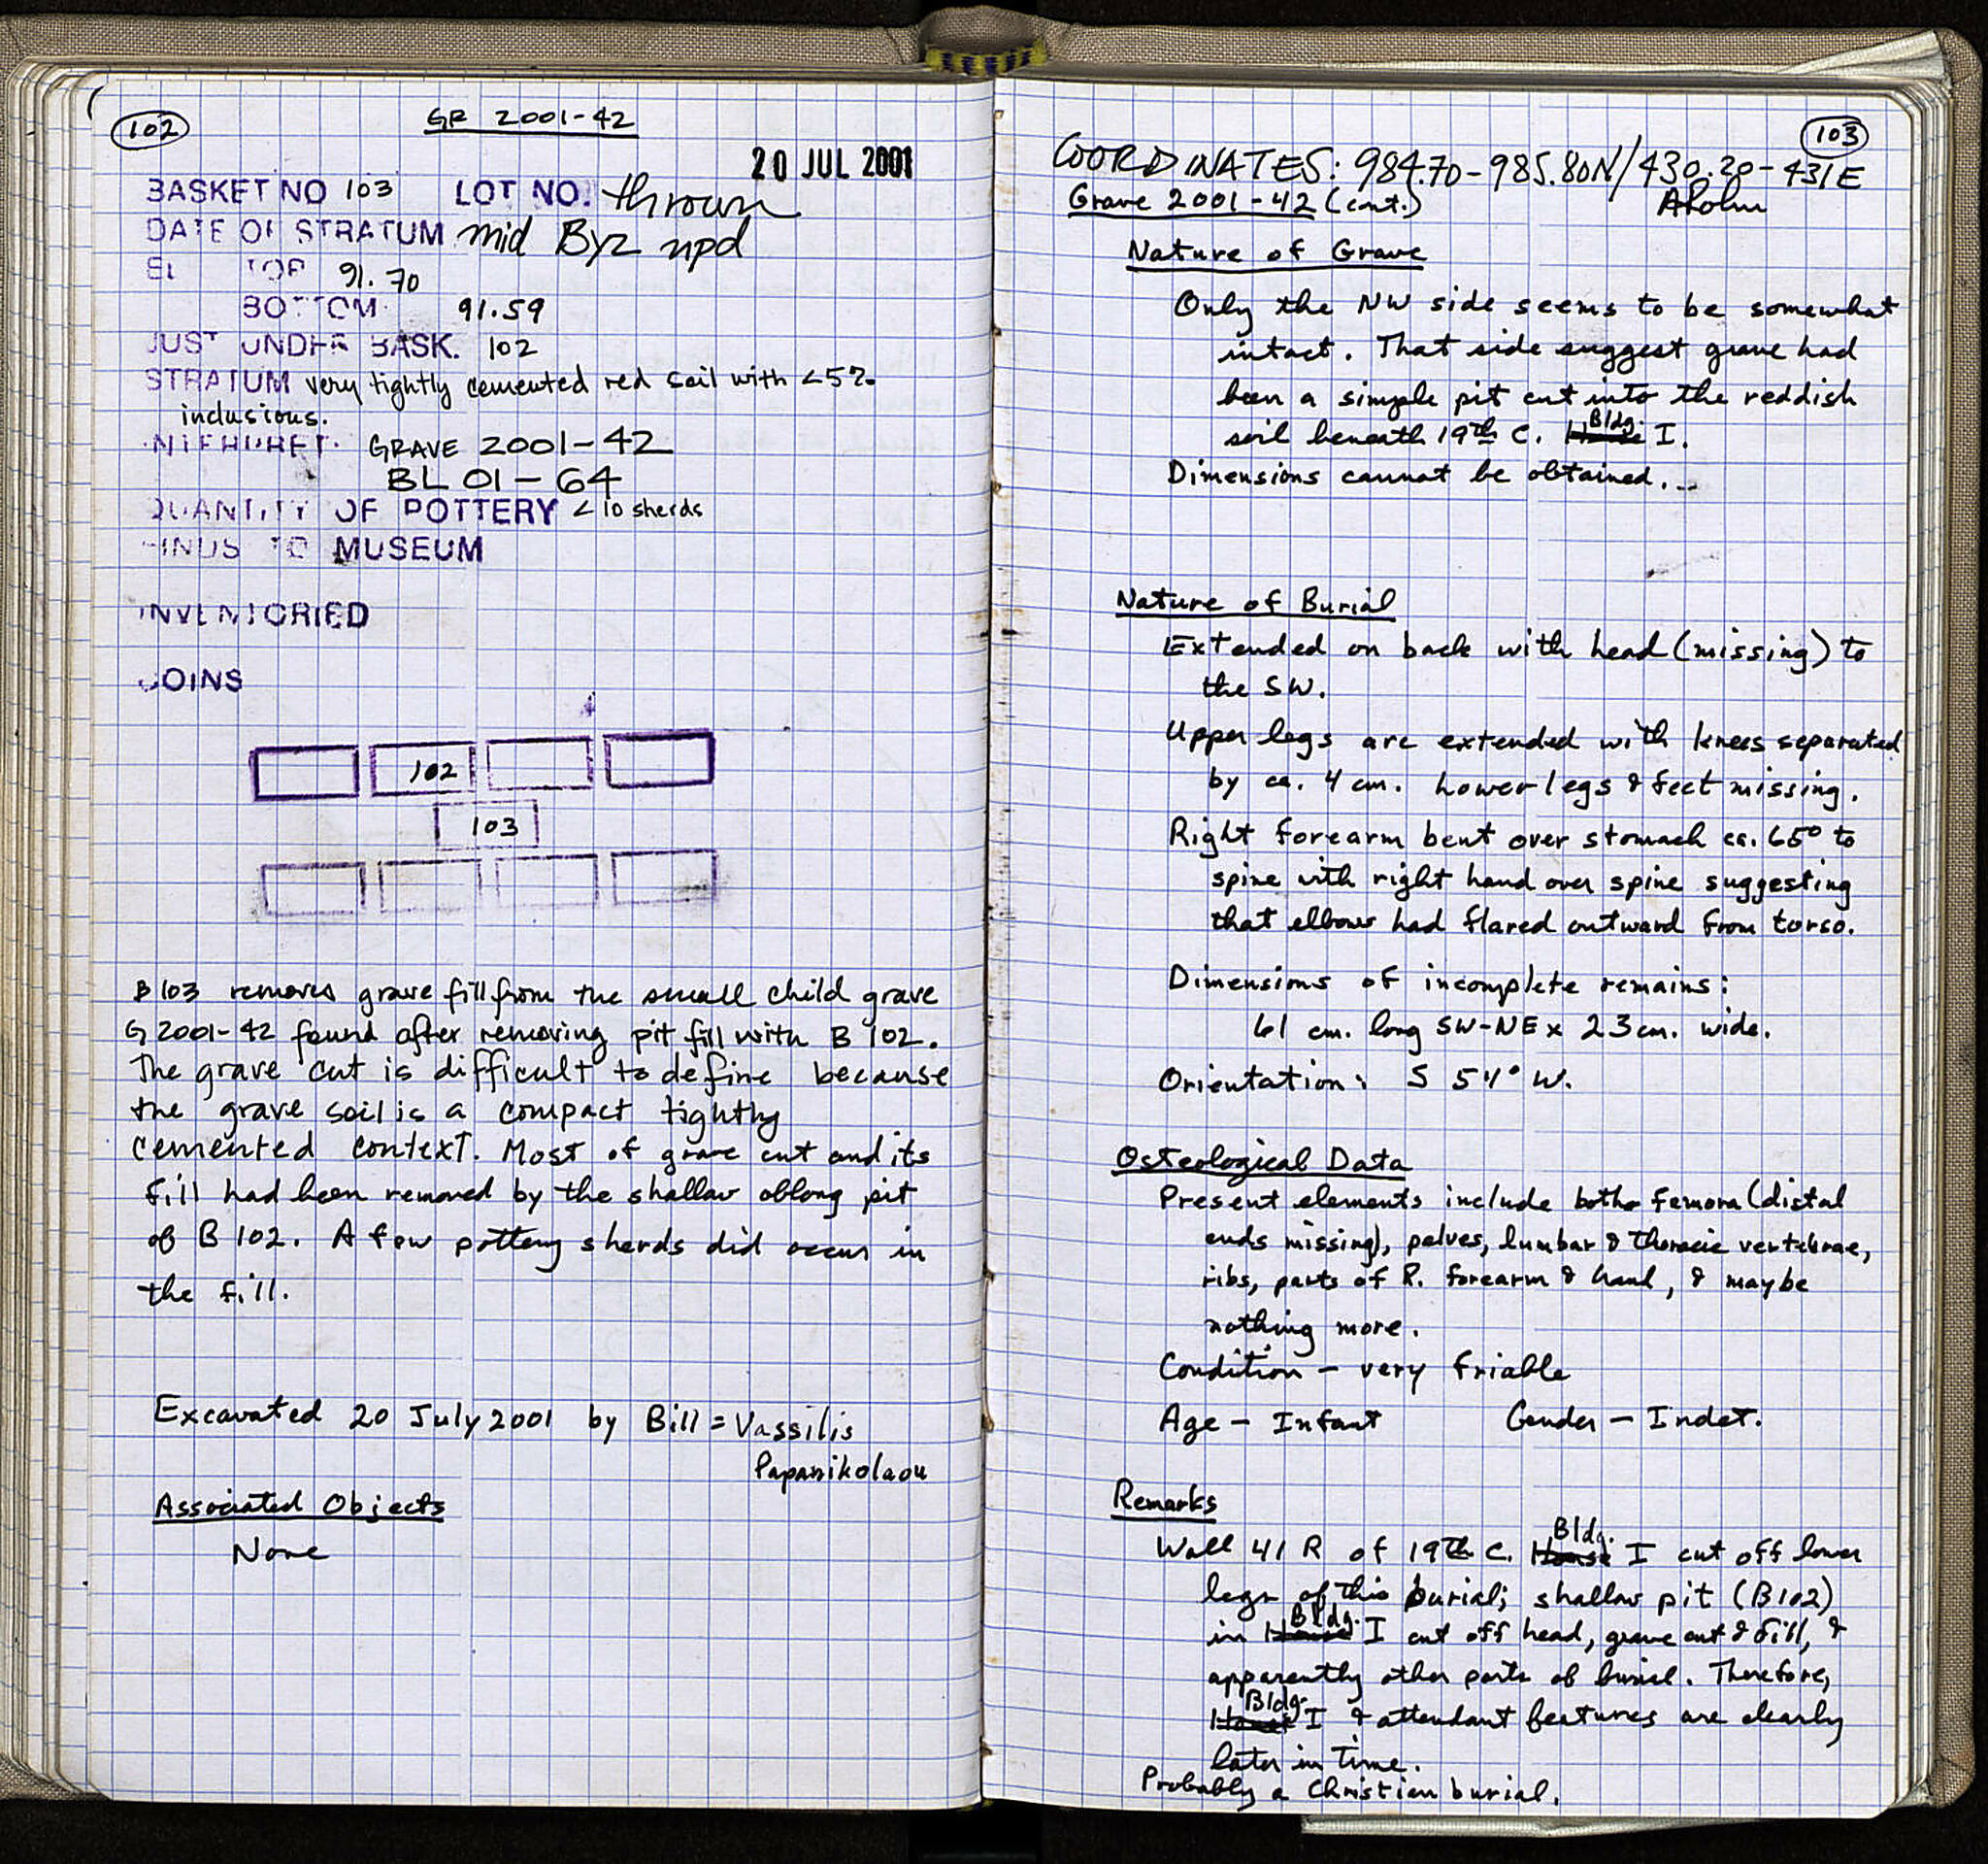 102
GR 2001-42
20 JUL 2001
BASKET NO 103 LOT NO. thrown
DATE OF STRATUM mid Byz npd
EL TOP 91.70
BOTTOM 91.59
JUST UNDER BASK. 102
STRATUM very tightly cemented red soil with <5%
inclusions.
INTERPRET. GRAVE 2001-42
BL 01-64
QUANTITY OF POTTERY <10 sherds
FINDS TO MUSEUM
INVENTORIED
JOINS
102
103
B103 removes grave fill from the small child grave
G 2001-42 found after removing pit fill with B 102.
The grave cut is difficult to define because
the grave soil is a compact tightly
cemented context. Most of grave cut and its
fill had been removed by the shallow oblong pit
of B 102. A few pottery sherds did occur in
the fill.
Excavated 20 July 2001 by Bill = Vassilis
Papanikolaou
Associated Objects
None
103
COORDINATES: 984.70-985.80N/430.20-431E
Grave 2001-42 (cont.) ARohn
Nature of Grave
Only the NW side seems to be somewhat
intact. That side suggest grave had
been a simple pit cut into the reddish
soil beneath 19th C. House Bldg. I.
Dimensions cannot be obtained...
Nature of Burial
Extended on back with head (missing) to
the SW.
Upper legs are extended with knees separated
by ca. 4 cm. Lower legs & feet missing.
Right forearm bent over stomach ca. 65° to
spine with right hand over spine suggesting
that elbows had flared outward from torso.
Dimensions of incomplete remains:
61 cm. long SW-NE x 23 cm. wide.
Orientation: S 54° W.
Osteological Data
Present elements include both femora (distal
ends missing), pelves, lumbar & thoracic vertebrae,
ribs, parts of R. forearm & hand, & maybe
nothing more.
Condition - very friable
Age - Infant Gender - Indet.
Remarks
Wall 41 R of 19th C. House Bldg. I cut off lower
legs of this burial; shallow pit (B102)
in House Bldg. I cut off head, grave cut & fill, &
apparently other parts of burial. Therefore,
House Bldg. I & attendant features are clearly
later in time.
Probably a Christian burial.